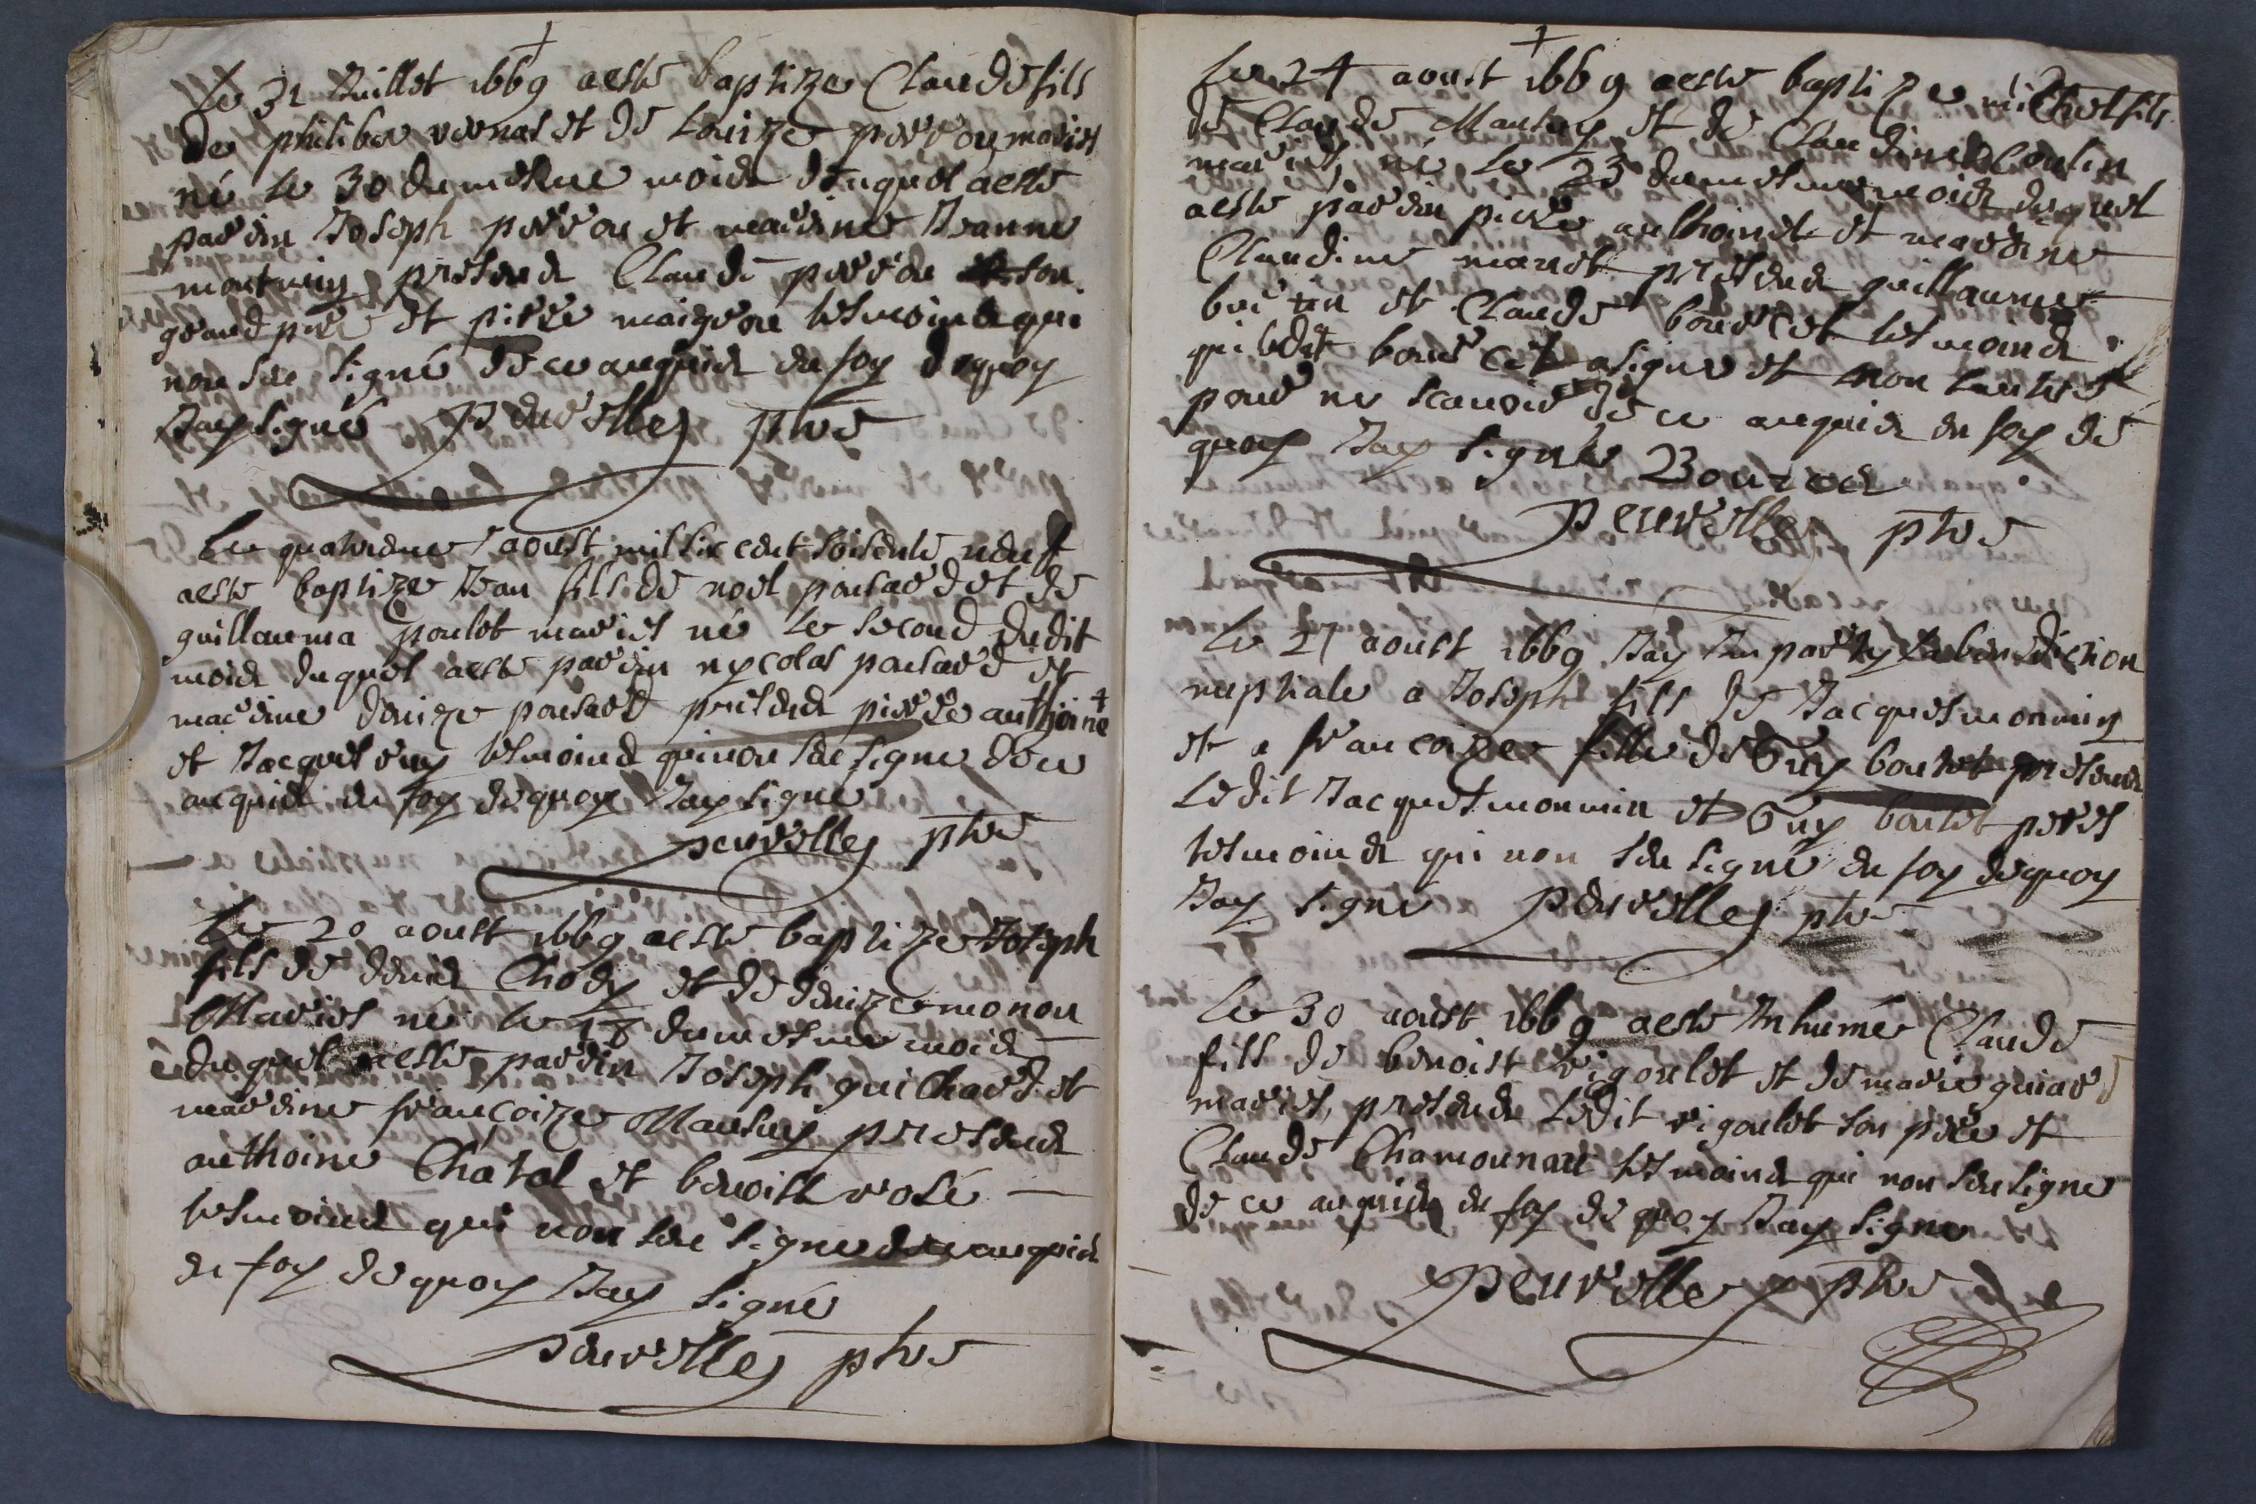 +
Le 31 Juillet 1669 a esté baptize Claude fils
de philiber vernas et de Louize perron mariés
né le 30 du mesme mois duquel a esté
parein Joseph perron et mareine Jeanne
presens Claude perron son
grand pere et pierre maigron tesmoins qui
non sceu signé de ce enquis en foy dequoy
Jay signé Peurelle ptre
Le quatriesme aoust mil six cent soisente neuf
a esté baptize Jean fils de noel ponsard et de
guillauma poulet mariés né le second dudit
mois duquel a esté parein nycolas ponsard et
mareine denize ponsard presens pierre anthoine
et Jacques tesmoins qui non sceu signe de ce
enquis en foy dequoy Jay signé
peurelle ptre
Le 20 aoust 1669 a esté baptize Joseph
fils de denis Chody et de denize monon
Mariés né le 18 du mesme mois
duquel a esté parein Joseph guichard et
mareine francoize Mausuy presens
anthoine Chatal et benoist rosé
tesmoins qui non sceu signe de ce enquis
en foy dequoy Jay signé
peurelle ptre
+
Le 24 aoust 1669 a esté baptize michel fils
de Claude Mausuy et de Claudine Coulin
mariés né le 23 du mesme mois duquel
a esté parein pierre anthoine et mareine
Claudine presens guillaume
et Claude bourcet tesmoins
ledit bourcet a signe et non lautre
pour ne scavoir de ce enquis en foy de
quoy Jay signé Bource
Peurelle ptre
Le 27 aoust 1669 Jay Imparty la benediction
nuptiale a Joseph fils de Jacques monnin
et a francoize fille de Guy boutet presens
Ledit Jacques monnin et Guy boutet peres
tesmoins qui non sceu signé en foy dequoy
Jay signé Peurelle ptre
Le 30 aoust 1669 a esté Inhumé Claude
fils de benoist rigoulet et de marie guiard
mariés, presens Ledit rigoulet son pere et
Claude tesmoins qui non sceu signe
de ce enquis en foy de quoy Jay signe
Peurelle ptre